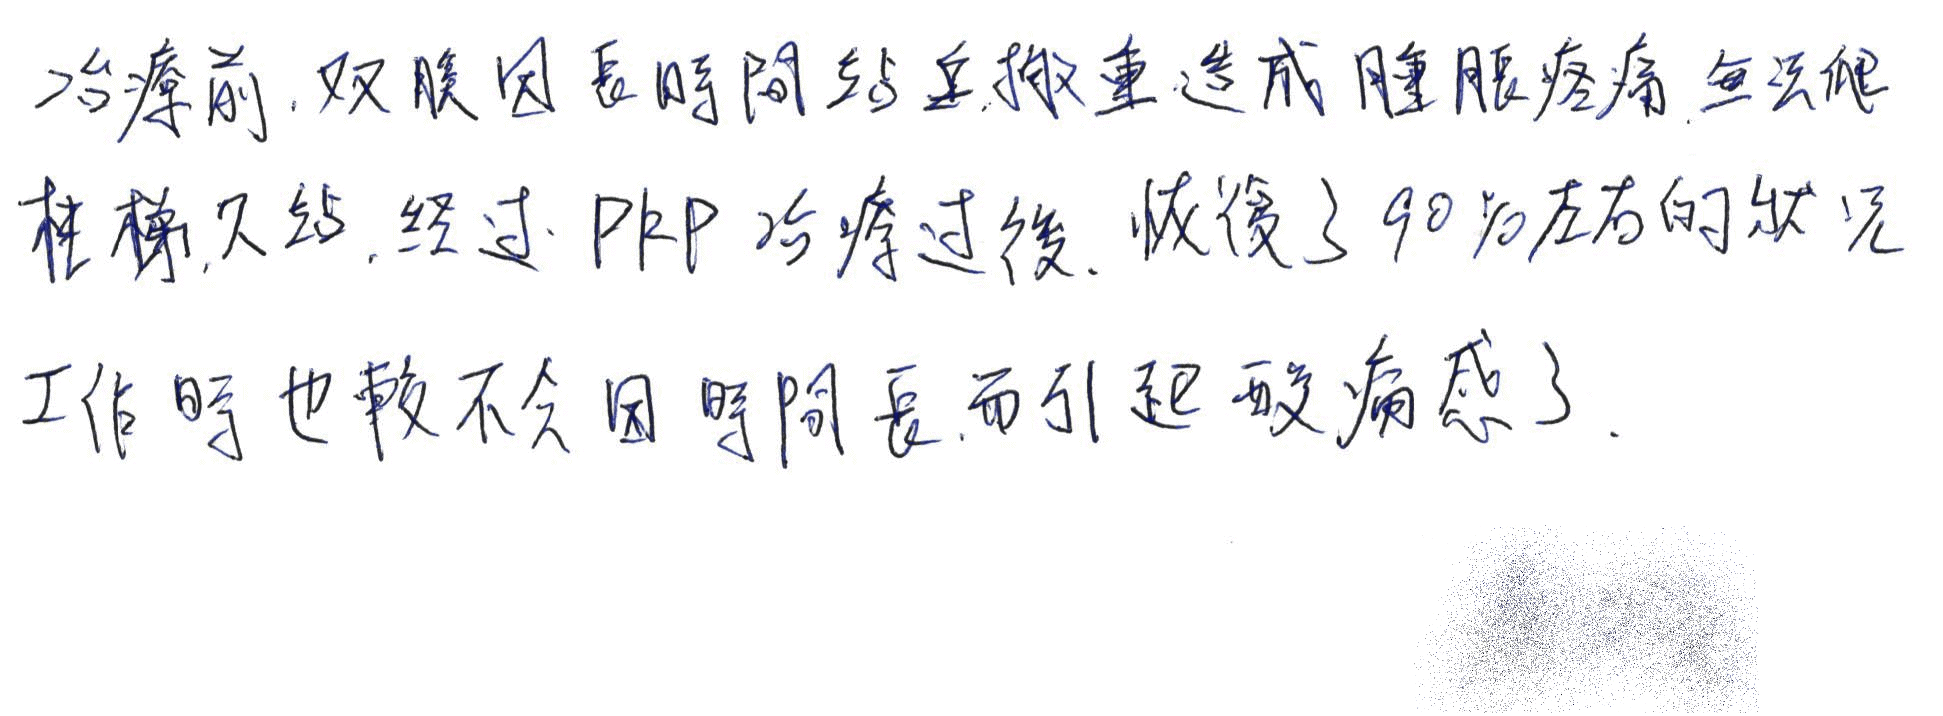 治療前.双膝因長時間站立.搬重.造成腫脹疼痛.無法爬
楼梯.久站.経过.PRP治療过後.恢復了90%左右的狀況
工作時也較不会因時間長.而引起酸痛感了.